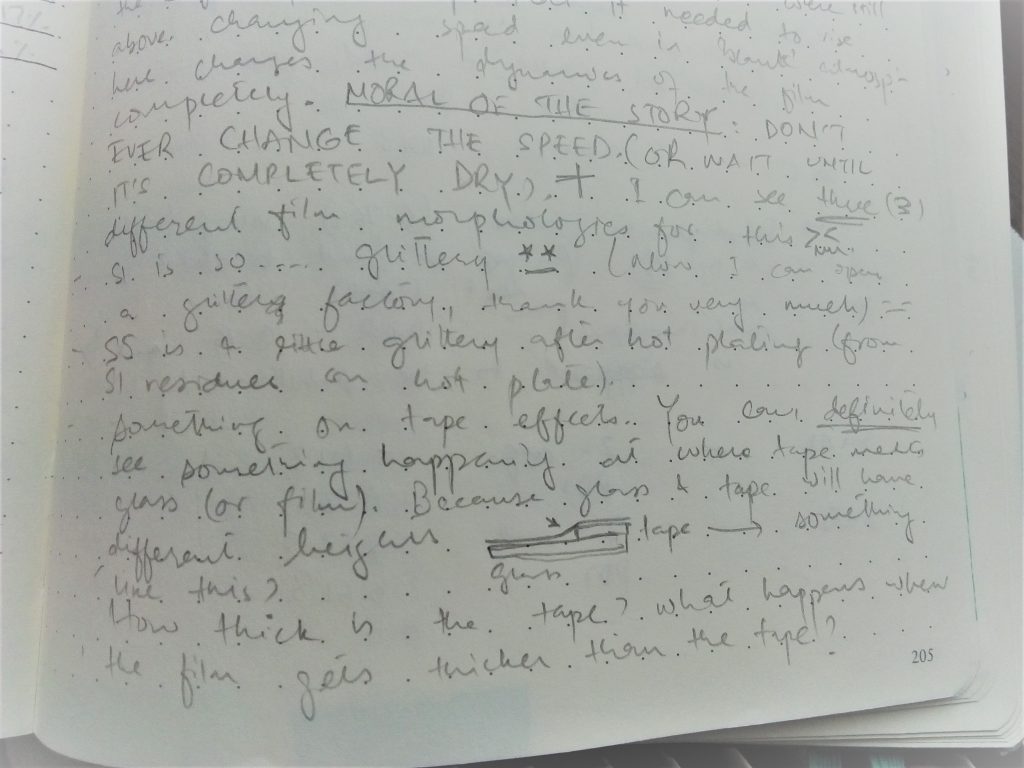 it needed to rise
above. changing speed even in "blank" atmosp-
here changes the dynamics of the film
completely. MORAL OF THE STORY: DON'T
EVER CHANGE THE SPEED. (OR WAIT UNTIL
IT'S COMPLETELY DRY). + I can see three (3)
different film morphologies for this
S1 is so .... glittery ** (Now I can open
a glittery factory, thank you very much) ==
S5 is a little glittery after hot plating (from
S1 residues on hot plate).
something on tape effects. You can definitely
see something happening at where tape meets
glass (or film). Because glass & tape will have
different heights tape → something
glass
like this?
How thick is the tape? what happens when
the film gets thicker than the tape?
205